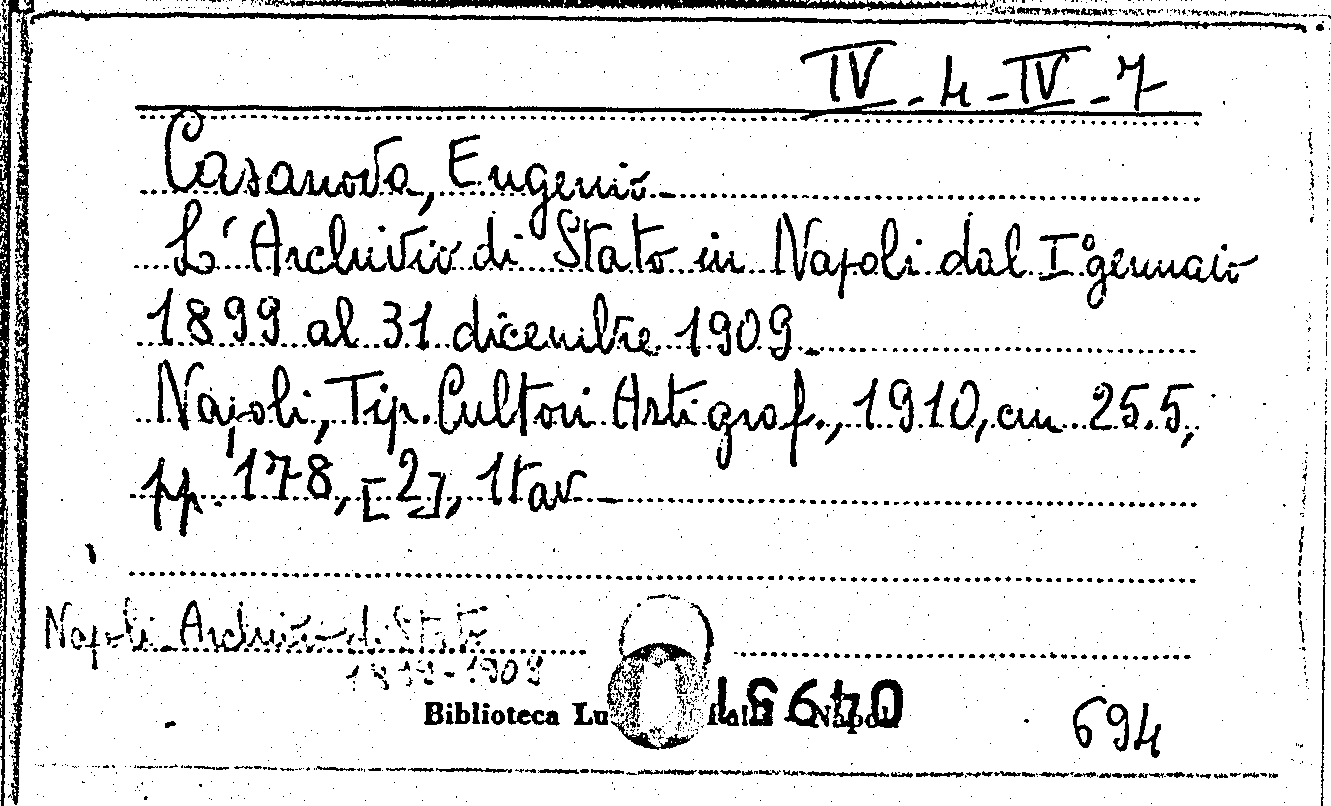 IV - 4 - IV - 7
Casanova, Eugenio -
L'Archivio di Stato in Napoli dal I° gennaio
1899 al 31 dicembre 1909 -
Napoli, Tip. Cultori Arti graf., 1910, cm 25.5,
pp. 178, [2], 1 tav -
Napoli - Archivio di Stato
1899-1909
Biblioteca Napoli
694